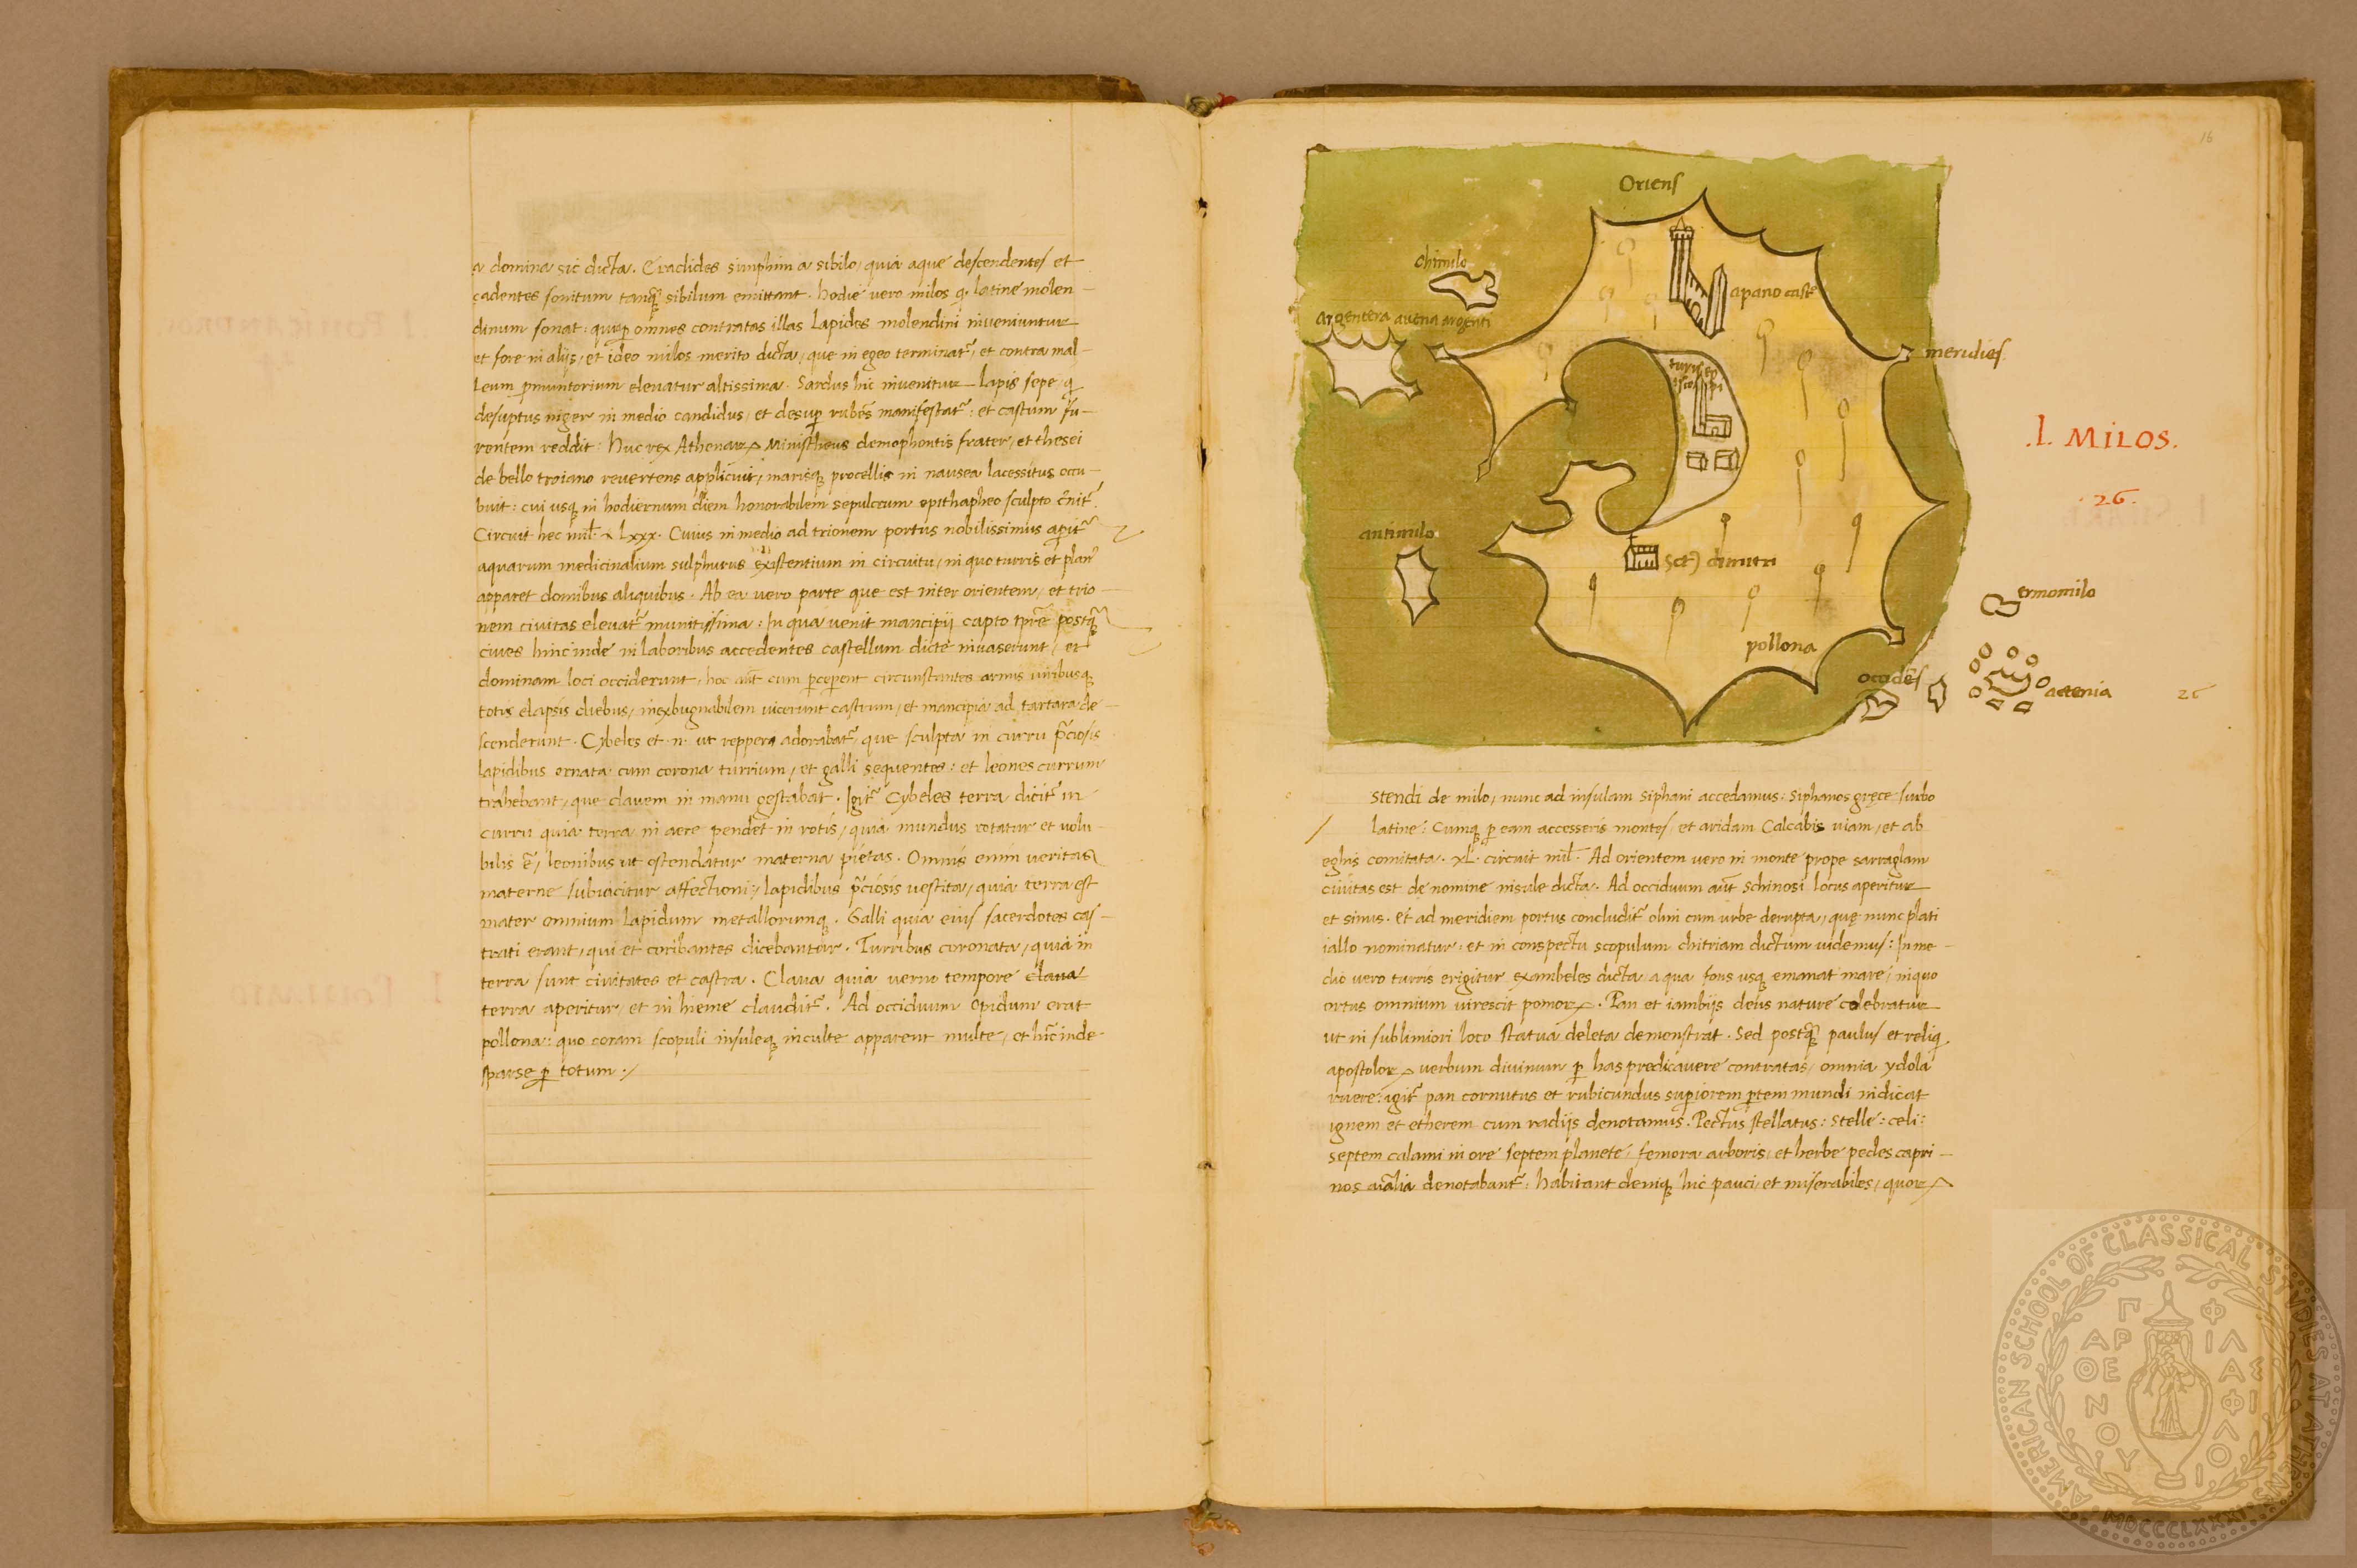 a domina sic dicta. Eraclides simphim a sibilo, quia aque descendentes et
cadentes sonitum tanq̃ sibilum emittant. hodie vero milos q. latine molen-
dinum sonat: quia ꝑ omnes contratas illas lapides molendini inveniuntur
et fore in alijs, et ideo milos merito dicta, que in egeo terminat̃, et contra mal-
leum ꝓmuntorium elevatur altissima. Sardus hic invenitur lapis sepe, q̃
desuptus niger in medio candidus, et desuꝑ rubẽs manifestat̃: et castum fu-
rentem reddit: Huc rex Athenaꝝ Ministheus demophontis frater, et thesei
de bello troiano revertens applicuit, marisq; procellis in nausea lacessitus occu-
buit: cui usq; in hodiernum diem honorabilem sepulcrum opithapheo sculpto c̃nit̃.
Circuit hec mil̃. Lxxx. Cuius in medio ad trionem portus nobilissimus aꝑit̃
aquarum medicinalium sulphurus existentium in circuitu, in quo turris et plan̄
apparet domibus aliquibus. Ab ea vero parte que est inter orientem, et trio
nem civitas elevat̃ munitissima: In qua venit mancipij capto tp̃re postq̃
cives hinc inde in laboribus accedentes castellum dicte invaserunt, et
dominam loci occiderunt, hoc aũt cum ꝑceperent circunstantes armis viribusq;
totis elapsis diebus, inexbugnabilem vicerunt castrum, et mancipia ad tartara de-
scenderunt. Cybeles et. n. ut reppera adorabat̃, que sculpta in curru p̃ciosis
lapidibus ornata cum corona turrium, et galli sequentes: et leones currum
trahebant, que clavem in manu gestabat. Igit̃ Cybeles terra dicit̃ in
curru quia terra in aere pendet in rotis, quia mundus rotatur et volu-
bilis ẽ, leonibus ut ostendatur materna pietas. Omnis enim veritas
materne subiacitur affectioni, lapidibus p̃ciosis vestita, quia terra est
mater omnium lapidum metallorumq;. Galli quia eius sacerdotes cas-
trati erant, qui et coribantes dicebantur. Turribus coronata, quia in
terra sunt civitates et castra. Clava quia verno tempore clava
terra aperitur, et in hieme claudit̃. Ad occiduum opidum erat
pollona: quo coram scopuli insuleq; inculte apparent multe, et hĩc inde
sparse ꝑ totum./
16
Oriens
chimilo
apano caste
argentera avena argenti
meridies
.I. MILOS.
.26.
antimilo
Sct̃) dimitri
ermomilo
pollona
occidẽs
actenia
26
Stendi de milo, nunc ad insulam Siphani accedamus: Siphanos gręce surbo
latine: Cumq; ꝑ eam accesseris montes, et aridam Calcabis viam, et ab
eghis comitata. xl. circuit mil̃. Ad orientem vero in monte prope sarraglam
civitas est de nomine insule dicta. Ad occiduum aũt Schinosi locus aperitur
et sinus. et ad meridiem portus concludit̃ olim cum urbe derupta, quę nunc plati
iallo nominatur: et in conspectu scopulum chitriam dictum videmus: In me-
dio vero turris erigitur exambeles dicta a qua fons usq; emanat mare, in quo
ortus omnium virescit pomoꝝ. Pan et iambijs deus nature celebratur
ut in sublimiori loco statua deleta demonstrat. Sed postq̃ paulus et reliq̃
apostoloꝝ verbum divinum ꝑ has predicavere contratas, omnia ydola
ruere: igit̃ pan cornutus et rubicundus suꝑiorem ꝑtem mundi indicat
ignem et etherem cum radijs denotamus. Pectus stellatus: Stelle: celi:
septem calami in ore septem planete, femora arboris, et herbe pedes capri-
nos aĩalia denotabant̃: habitant deniq; hic pauci, et miserabiles, quoꝝ
AMERICAN SCHOOL OF CLASSICAL STUDIES AT ATHENS
MDCCCLXXXI